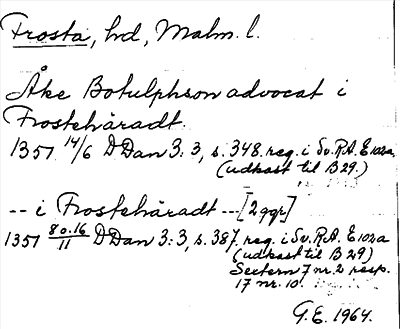 Frosta, hd, Malm. l.
Åke Botulphson advocat i
Frostehäradt
1351 14/6 DDan 3:3, s. 348. reg. i Sv.R.A. E102a
(udkast til B29.)
-- i Frostehäradt -- [2 ggr]
1351 8 o. 16/11 DDan 3:3, s. 387. reg. i Sv. R.A. E102a
(udkast til B29)
Sextern 7 nr. 2 resp.
17 nr. 10.
G.E. 1964.